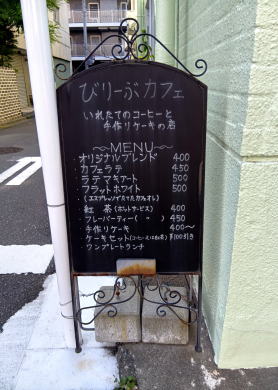 びりーぶカフェ
いれたてのコーヒーと
手作りケーキの店
～MENU～
・オリジナルブレンド 400
・カフェラテ 450
・ラテマキアート 500
・フラットホワイト 500
・(エスプレッソでたてたカフェオレ)
・紅茶(ポットサービス) 400
・フレーバーティー( 〃 ) 450
・手作りケーキ 400～
・ケーキセット(コーヒー又は紅茶) ¥100引き
・ワンプレートランチ